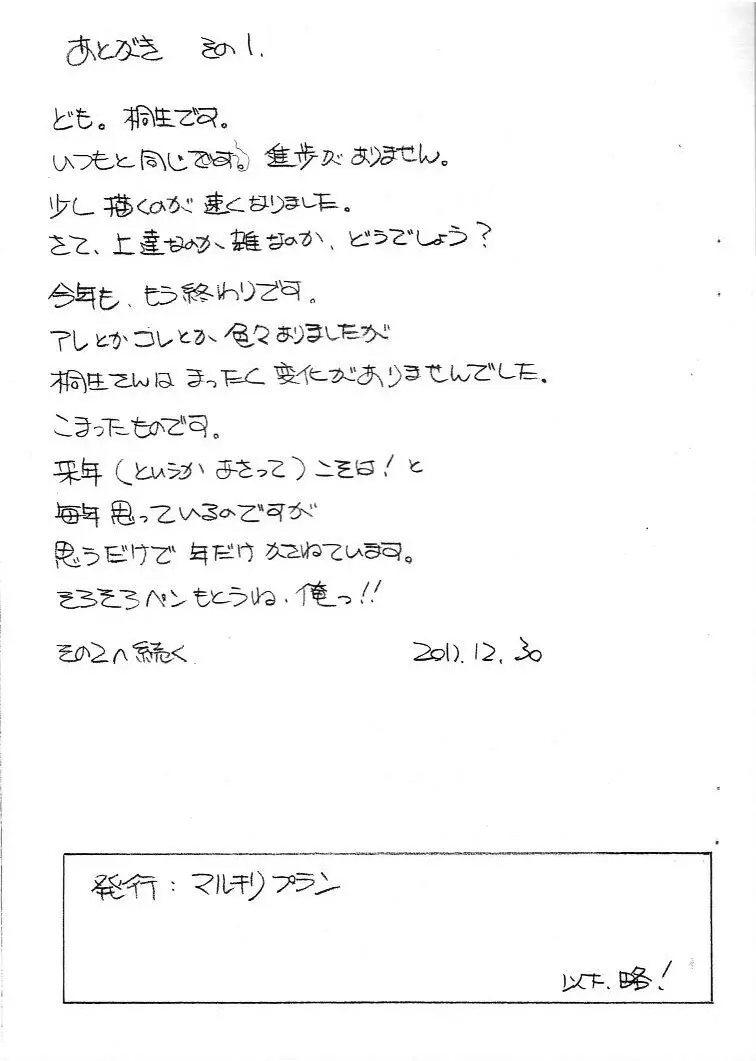 あとがき その1.
ども。桐生です。
いつもと同じです。進歩がありません。
少し描くのが速くなりました。
さて、上達なのか、雑なのか、どうでしょう？
今年も、もう終わりです。
アレとかコレとか、色々ありましたが
桐生さんはまったく変化がありませんでした。
こまったものです。
来年（というかあさって）こそは！と
毎年思っているのですが
思うだけで年だけかさねています。
そろそろペンもとうね、俺っ!!
その2へ続く 2011.12.30
発行：マルキリプラン
以下、略！